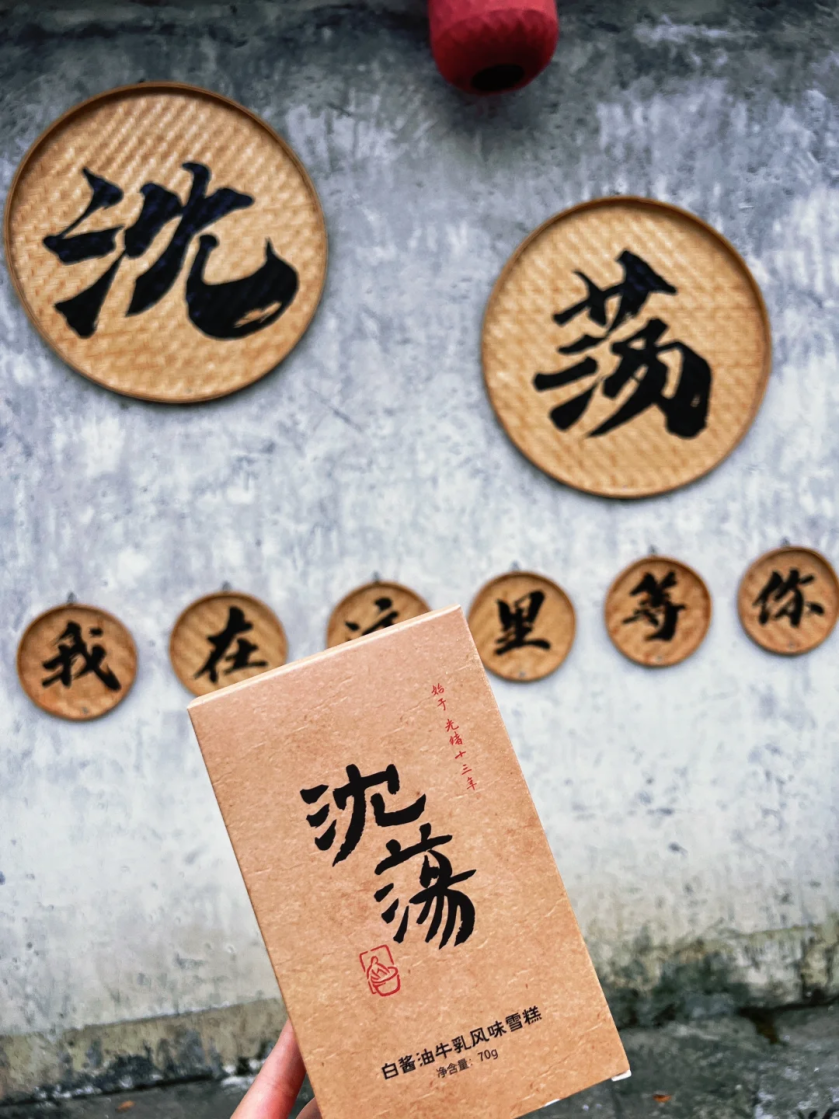 沈荡
我在这里等你
始于光绪十三年
沈蕩
白酱油牛乳风味雪糕
净含量：70g